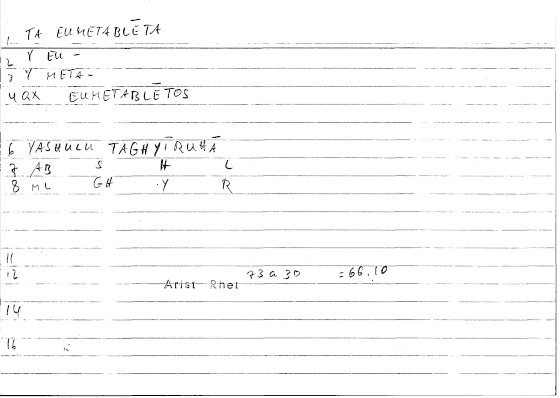 1 TA EUMETABLĒTA
2 Y EU -
3 Y META -
4 QX EUMETABLĒTOS
6 YASHULU TAGHYĪRUHĀ
7 AB S H L
8 ML GH Y R
11
12 Arist Rhet 73 a 30 = 66.10
14
16